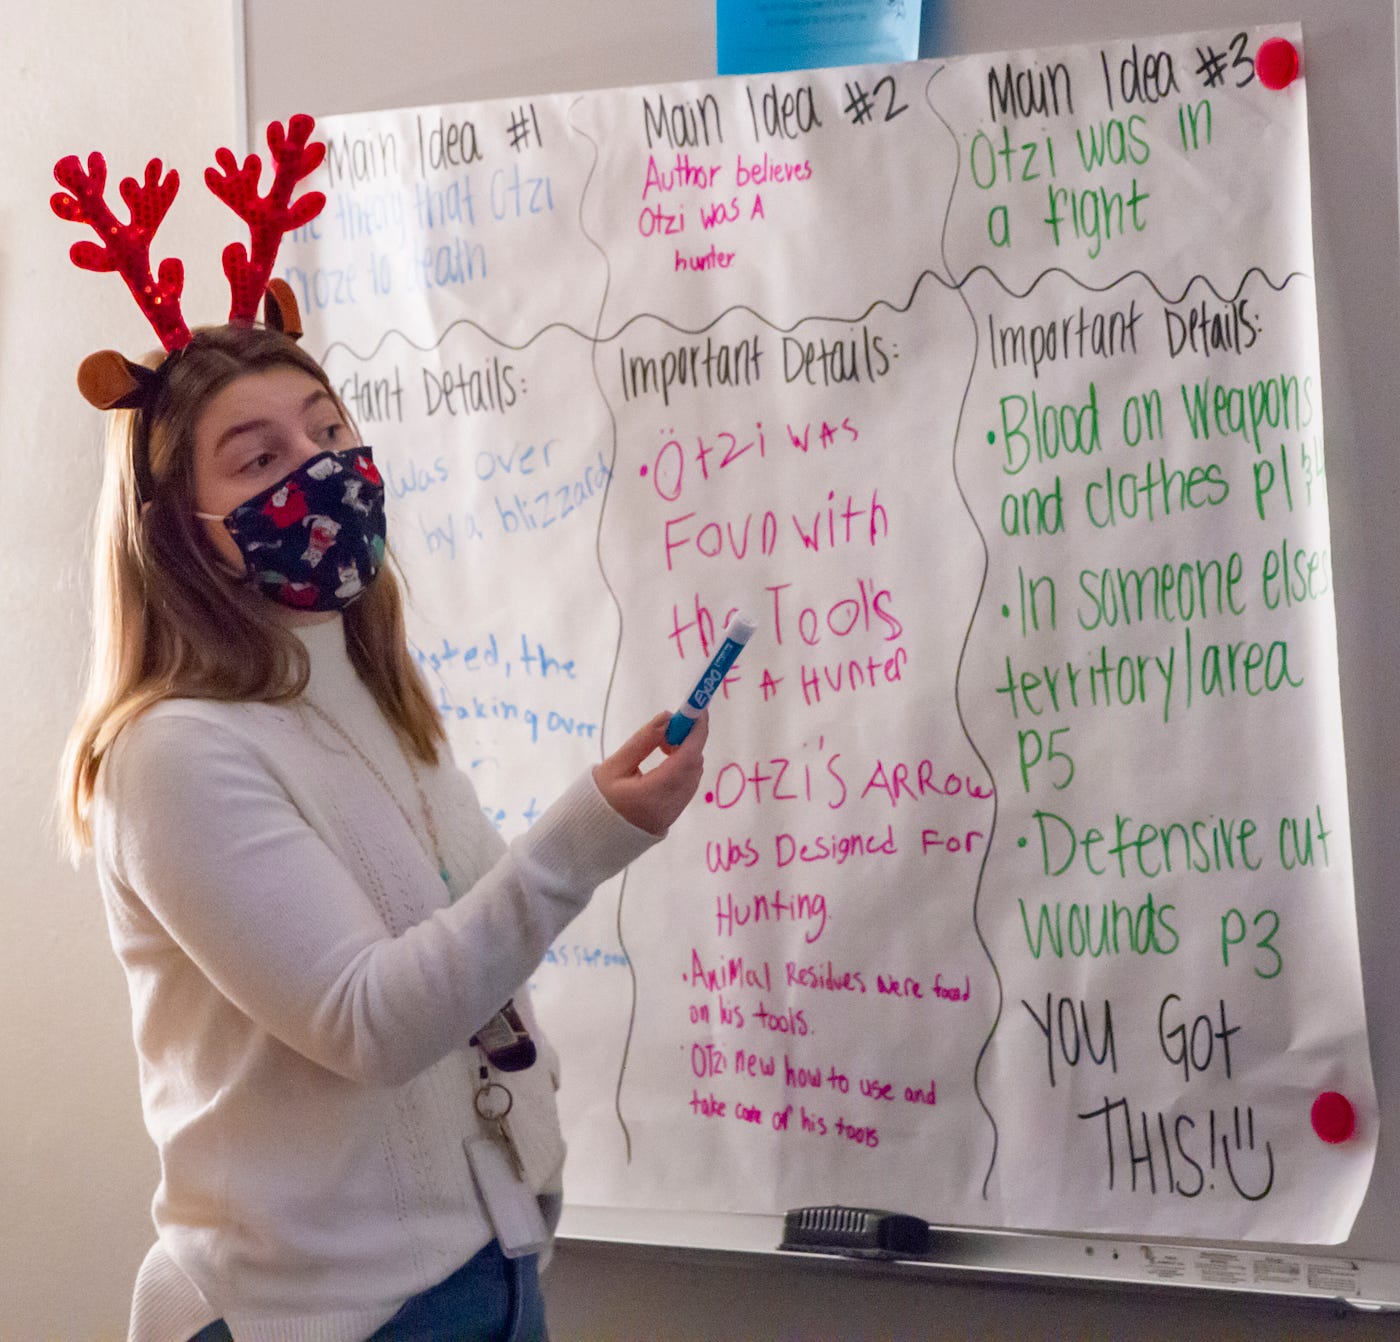 Main Idea #1
theory that Otzi
froze to death
Details:
was over
by a blizzard
the
taking over
Main Idea #2
Author believes
Otzi was A
hunter
Important Details:
• Ötzi was
Foun with
the Tools
F A Hunter
• Otzi's ARROW
was Designed For
Hunting.
• Animal Residues were found
on his tools.
• OTzi new how to use and
take care of his tools
Main Idea #3
Otzi was in
a fight
Important Details:
• Blood on weapons
and clothes p1
• In someone elses
territory/area
P5
• Defensive cut
wounds p3
YOU GOt
THIS!
EXPO